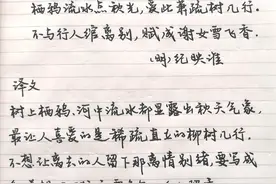 栖鸦流水点秋光，爱此萧疏树几行。
不与行人绾离别，赋成谢女雪飞香。
(明)纪映淮
译文
树上栖鸦，河中流水都显露出秋天气象，
最让人喜爱的是稀疏直去的柳树几行。
不想让离去的人留下那离情别绪，要写成